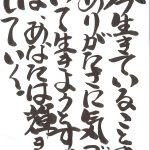 今生きていること
ありがたさに気づ
けて生きようとす
は、あなたは輝き
ていく!